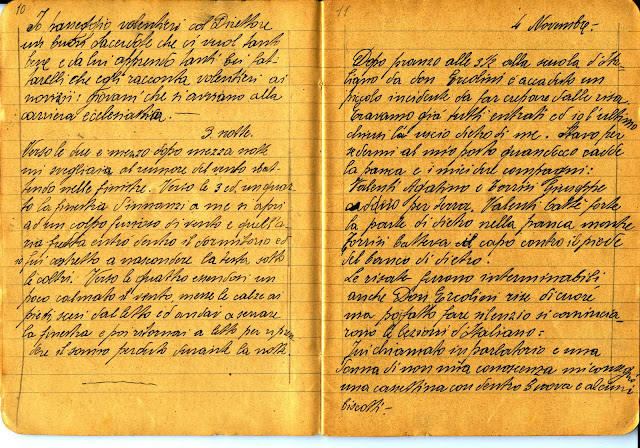 10
Io passeggio volentieri col Direttore
un buon Sacerdote che ci vuol tanto
bene e da lui apprendo tanti bei fat-
tarelli che egli racconta volentieri ai
novizii: giovani che si avviano alla
carriera ecclesiastica. —
3. notte.
Verso le due e mezzo dopo mezza notte
mi svegliavo al rumore del vento sbat-
tendo nelle finestre. Verso le 3 ed un quar-
to la finestra dinnanzi a me si aprì
ad un colpo furioso di vento e quell'a-
ria entro dentro il dormitorio ed
io fui costretto a nascondere la testa sotto
le coltri. Verso le quattro essendosi un
poco calmato il vento, messe le calze ai
piedi scesi dal letto ed andai a serrare
la finestra e poi ritornai a letto per ripren-
dere il sonno perduto durante la notte.
11
4 Novembre –
Dopo pranzo alle 3½ alla scuola d'Ita-
liano da don Ercolini è accaduto un
piccolo incidente da far crepare dalle risa.
Eravamo già tutti entrati ed io l'ultimo
chiusi l'uscio dietro di me. Stavo per
sedermi al mio posto quand'ecco cadde
la panca e i miei due compagni:
Valenti Natalino e Borrini Giuseppe
per terra. Valenti batté forte
la parte di dietro nella panca mentre
Borrini batteva il capo contro il piede
del banco di dietro.
Le risate furono interminabili
anche Don Ercolini rise di cuore
ma poi fatto fare silenzio si comincia-
rono le lezioni d'Italiano:
Fui chiamato in parlatorio e una
donna di non mia conoscenza mi consegnò
una cassettina con dentro 5 uova e alcuni
biscotti –